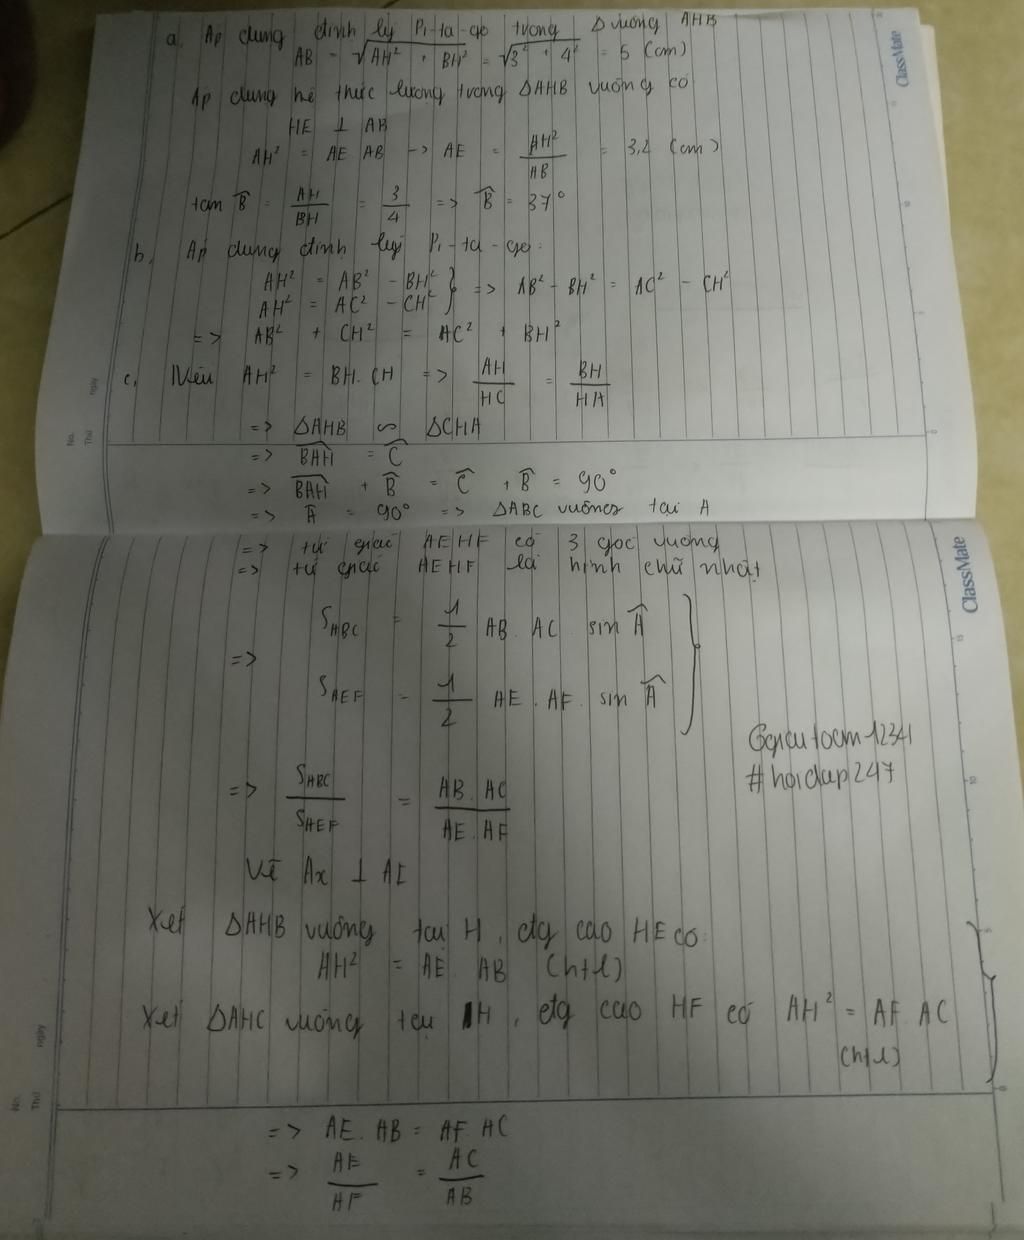 a, Áp dụng định lý Pi-ta-go trong Δ vuông AHB
AB = √AH² + BH² = √3² + 4² = 5 (cm)
Áp dụng hệ thức lượng trong ΔAHB vuông có
HE ⊥ AB
AH² = AE . AB -> AE = AH²/AB = 3,2 (cm)
tan B̂ = AH/BH = 3/4 => B̂ = 37°
b, Áp dụng định lý Pi-ta-go:
AH² = AB² - BH² } => AB² - BH² = AC² - CH²
AH² = AC² - CH²
=> AB² + CH² = AC² + BH²
c, Nếu AH² = BH. CH => AH/HC = BH/HA
=> ΔAHB ∽ ΔCHA
=> BAH = Ĉ
=> BAH + B̂ = Ĉ + B̂ = 90°
=> Â = 90° => ΔABC vuông tại A
=> tứ giác AEHF có 3 góc vuông
=> tứ giác AEHF là hình chữ nhật
=> S_ABC = 1/2 AB. AC. sin Â
S_AEF = 1/2 AE. AF. sin Â
=> S_ABC/S_AEF = AB. AC/AE. AF
#hoidap247
Vẽ Ax ⊥ AI
Xét ΔAHB vuông tại H, đg cao HE có:
AH² = AE. AB (htl)
Xét ΔAHC vuông tại H, đg cao HF có AH² = AF. AC
(htl)
=> AE. AB = AF. AC
=> AE/AF = AC/AB
ClassMate
ClassMate
No.
Thứ
ngày
No.
Thứ
ngày